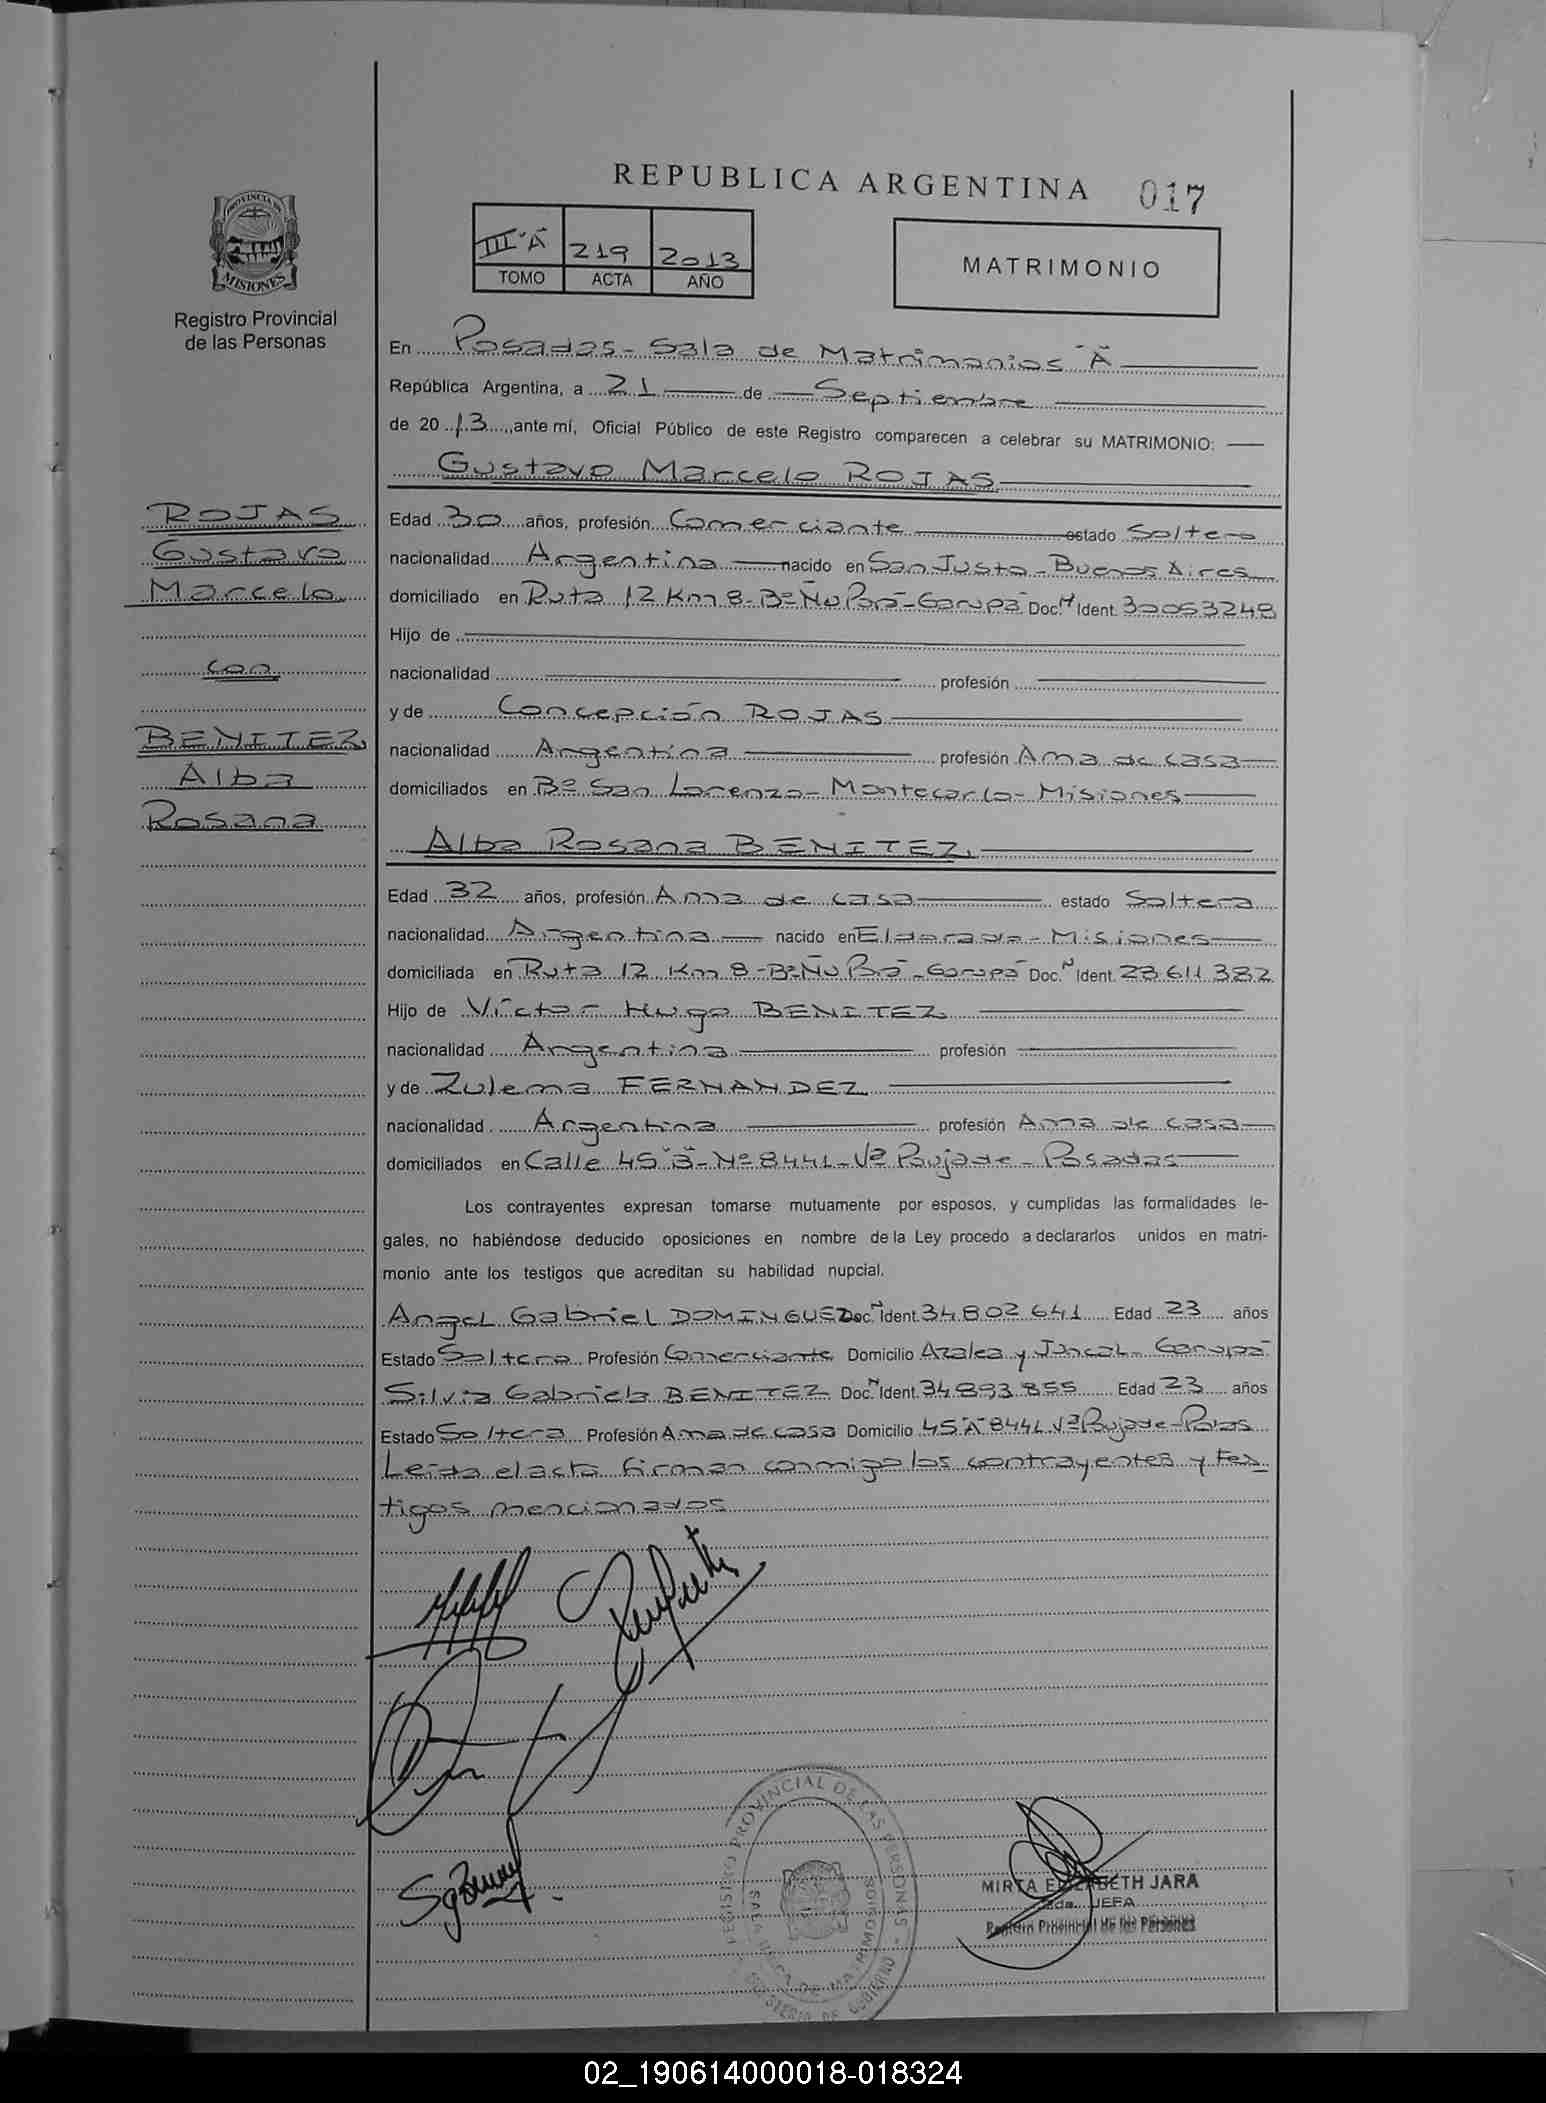 REPUBLICA ARGENTINA
017
III "A" 219 2013
TOMO ACTA AÑO
MATRIMONIO
PROVINCIA DE
MISIONES
Registro Provincial
de las Personas
ROJAS
Gustavo
Marcelo
con
BENITEZ
Alba
Rosana
En Posadas - Sala de Matrimonios "A"
República Argentina, a 21 de Septiembre
de 2013, ante mí, Oficial Público de este Registro comparecen a celebrar su MATRIMONIO:
Gustavo Marcelo ROJAS
Edad 30 años, profesión Comerciante estado Soltero
nacionalidad Argentina nacido en San Justo - Buenos Aires
domiciliado en Ruta 12 Km 8 - Bº Ñu Porá - Garupá Doc. N Ident. 30053248
Hijo de
nacionalidad profesión
y de Concepción ROJAS
nacionalidad Argentina profesión Ama de casa
domiciliados en Bº San Lorenzo - Montecarlo - Misiones
Alba Rosana BENITEZ
Edad 32 años, profesión Ama de casa estado Soltera
nacionalidad Argentina nacido en Eldorado - Misiones
domiciliada en Ruta 12 Km 8 - Bº Ñu Porá - Garupá Doc. N Ident. 28.611.382
Hijo de Víctor Hugo BENITEZ
nacionalidad Argentina profesión
y de Zulema FERNANDEZ
nacionalidad Argentina profesión Ama de casa
domiciliados en Calle 45 "B" - Nº 8441 - Vª Poujade - Posadas
Los contrayentes expresan tomarse mutuamente por esposos, y cumplidas las formalidades le-
gales, no habiéndose deducido oposiciones en nombre de la Ley procedo a declararlos unidos en matri-
monio ante los testigos que acreditan su habilidad nupcial.
Angel Gabriel DOMINGUEZ Doc. N Ident. 34.802.641 Edad 23 años
Estado Soltero Profesión Comerciante Domicilio Azalea y Juncal - Garupá
Silvia Gabriela BENITEZ Doc. N Ident. 34.893.855 Edad 23 años
Estado Soltera Profesión Ama de casa Domicilio 45 "A" 8441 Vª Poujade - Posas
Leída el acta firman conmigo los contrayentes y tes
tigos mencionados
REGISTRO PROVINCIAL DE LAS PERSONAS
MINISTERIO DE GOBIERNO
MIRTA ELIZABETH JARA
JEFA
Registro Provincial de las Personas
02_190614000018-018324